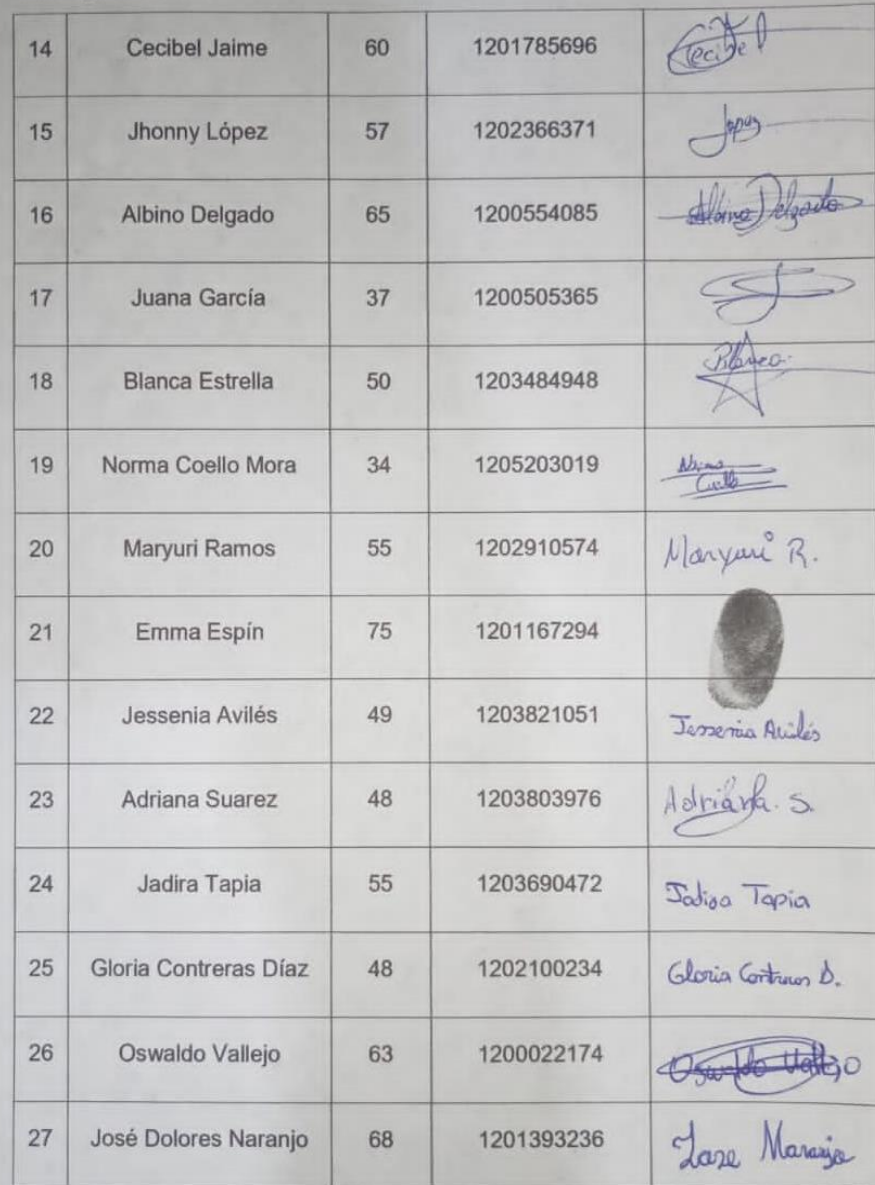 14 Cecibel Jaime 60 1201785696 Cecibel
15 Jhonny López 57 1202366371 Lopez
16 Albino Delgado 65 1200554085 Albino Delgado
17 Juana García 37 1200505365
18 Blanca Estrella 50 1203484948 Blanca
19 Norma Coello Mora 34 1205203019 Norma
Coello
20 Maryuri Ramos 55 1202910574 Maryuri R.
21 Emma Espín 75 1201167294
22 Jessenia Avilés 49 1203821051 Jessenia Avilés
23 Adriana Suarez 48 1203803976 Adriana. S.
24 Jadira Tapia 55 1203690472 Jadira Tapia
25 Gloria Contreras Díaz 48 1202100234 Gloria Contreras D.
26 Oswaldo Vallejo 63 1200022174 Oswaldo Vallejo
27 José Dolores Naranjo 68 1201393236 Jose Naranjo